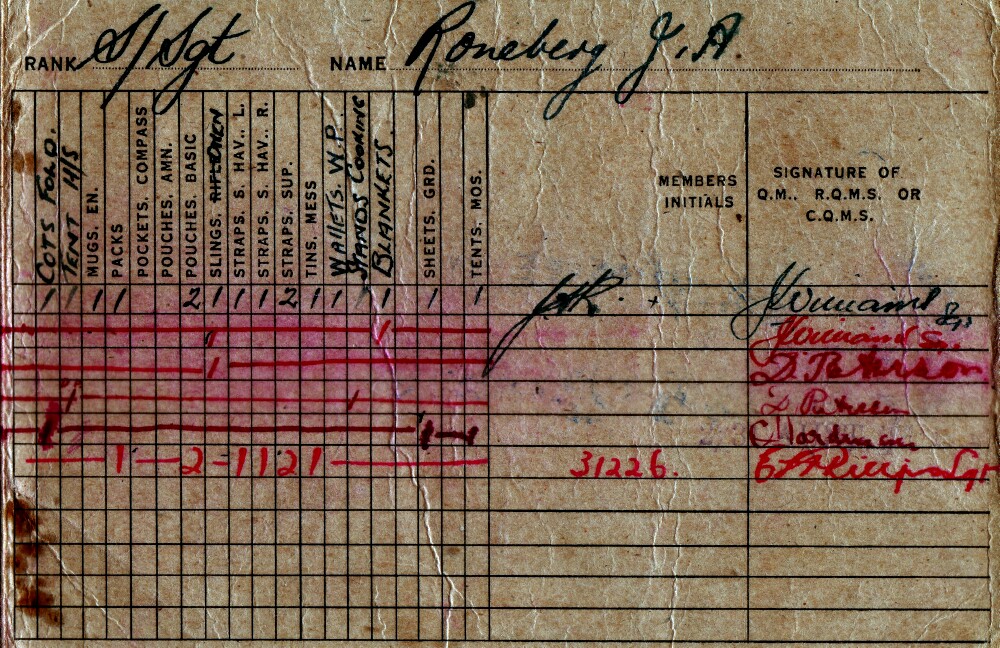 RANK S/Sgt NAME Roneberg J. A.
COTS FOLD.
TENT H/S
MUGS. EN.
PACKS
POCKETS. COMPASS
POUCHES. AMN.
POUCHES. BASIC
SLINGS. RIFLE MEN
STRAPS. S. HAV.. L.
STRAPS. S. HAV.. R.
STRAPS. SUP.
TINS. MESS
WALLETS. W.P.
STANDS COOKING
BLANKETS
SHEETS. GRD.
TENTS. MOS.
MEMBERS INITIALS
SIGNATURE OF
Q.M.. R.Q.M.S. OR
C.Q.M.S.
1 1 1 1 2 1 1 1 2 1 1 1 1 1 JAR. JWilliams
1 1 JWilliams
1 D. Paterson
1 1 D Paterson
1 1
1 2 1 1 2 1 31226. Phillips Sgt